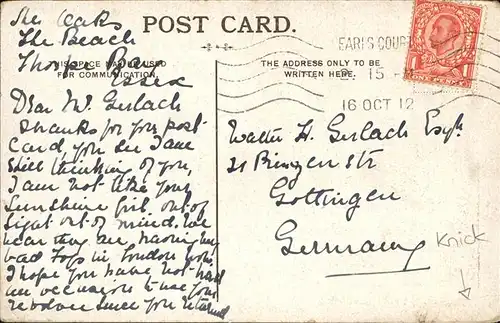 The Oaks
The Beach
Thorpe Bay
Essex
POST CARD.
THIS SPACE MAY BE USED
FOR COMMUNICATION.
THE ADDRESS ONLY TO BE
WRITTEN HERE.
EARL'S COURT
15
16 OCT 12
1
Dear Mr Gerlach
Thanks for your post
card, you see I am
still thinking of you,
I am not like your
Sunshine Girl. out of
sight out of mind. We
hear they are having
bad Fogs in London now,
I hope you have not had
an occasion to use your
revolver since you returned
Walter H. Gerlach Esq.
21 Str
Gottingen
Germany
Knick